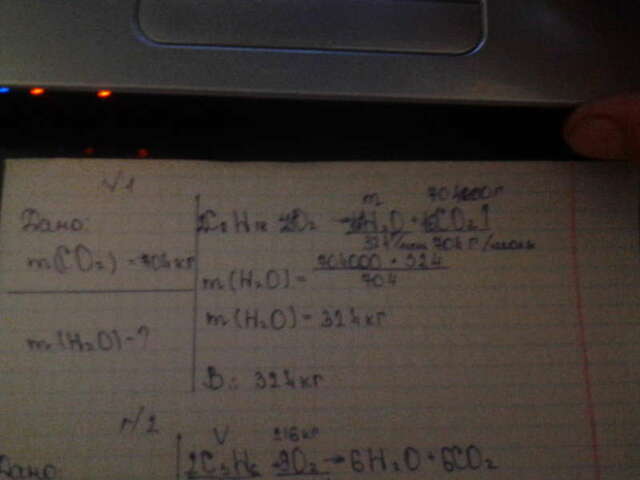 №1
Дано:
m(CO₂) = 704кг
m(H₂O) - ?
m 704000г
H₂O + CO₂↑
324 704 г/моль
m(H₂O) = 704000 · 324
704
m(H₂O) = 324кг
В.: 324кг
№2
Дано
V 216кг
2C₃H₆ 9O₂ → 6H₂O + 6CO₂